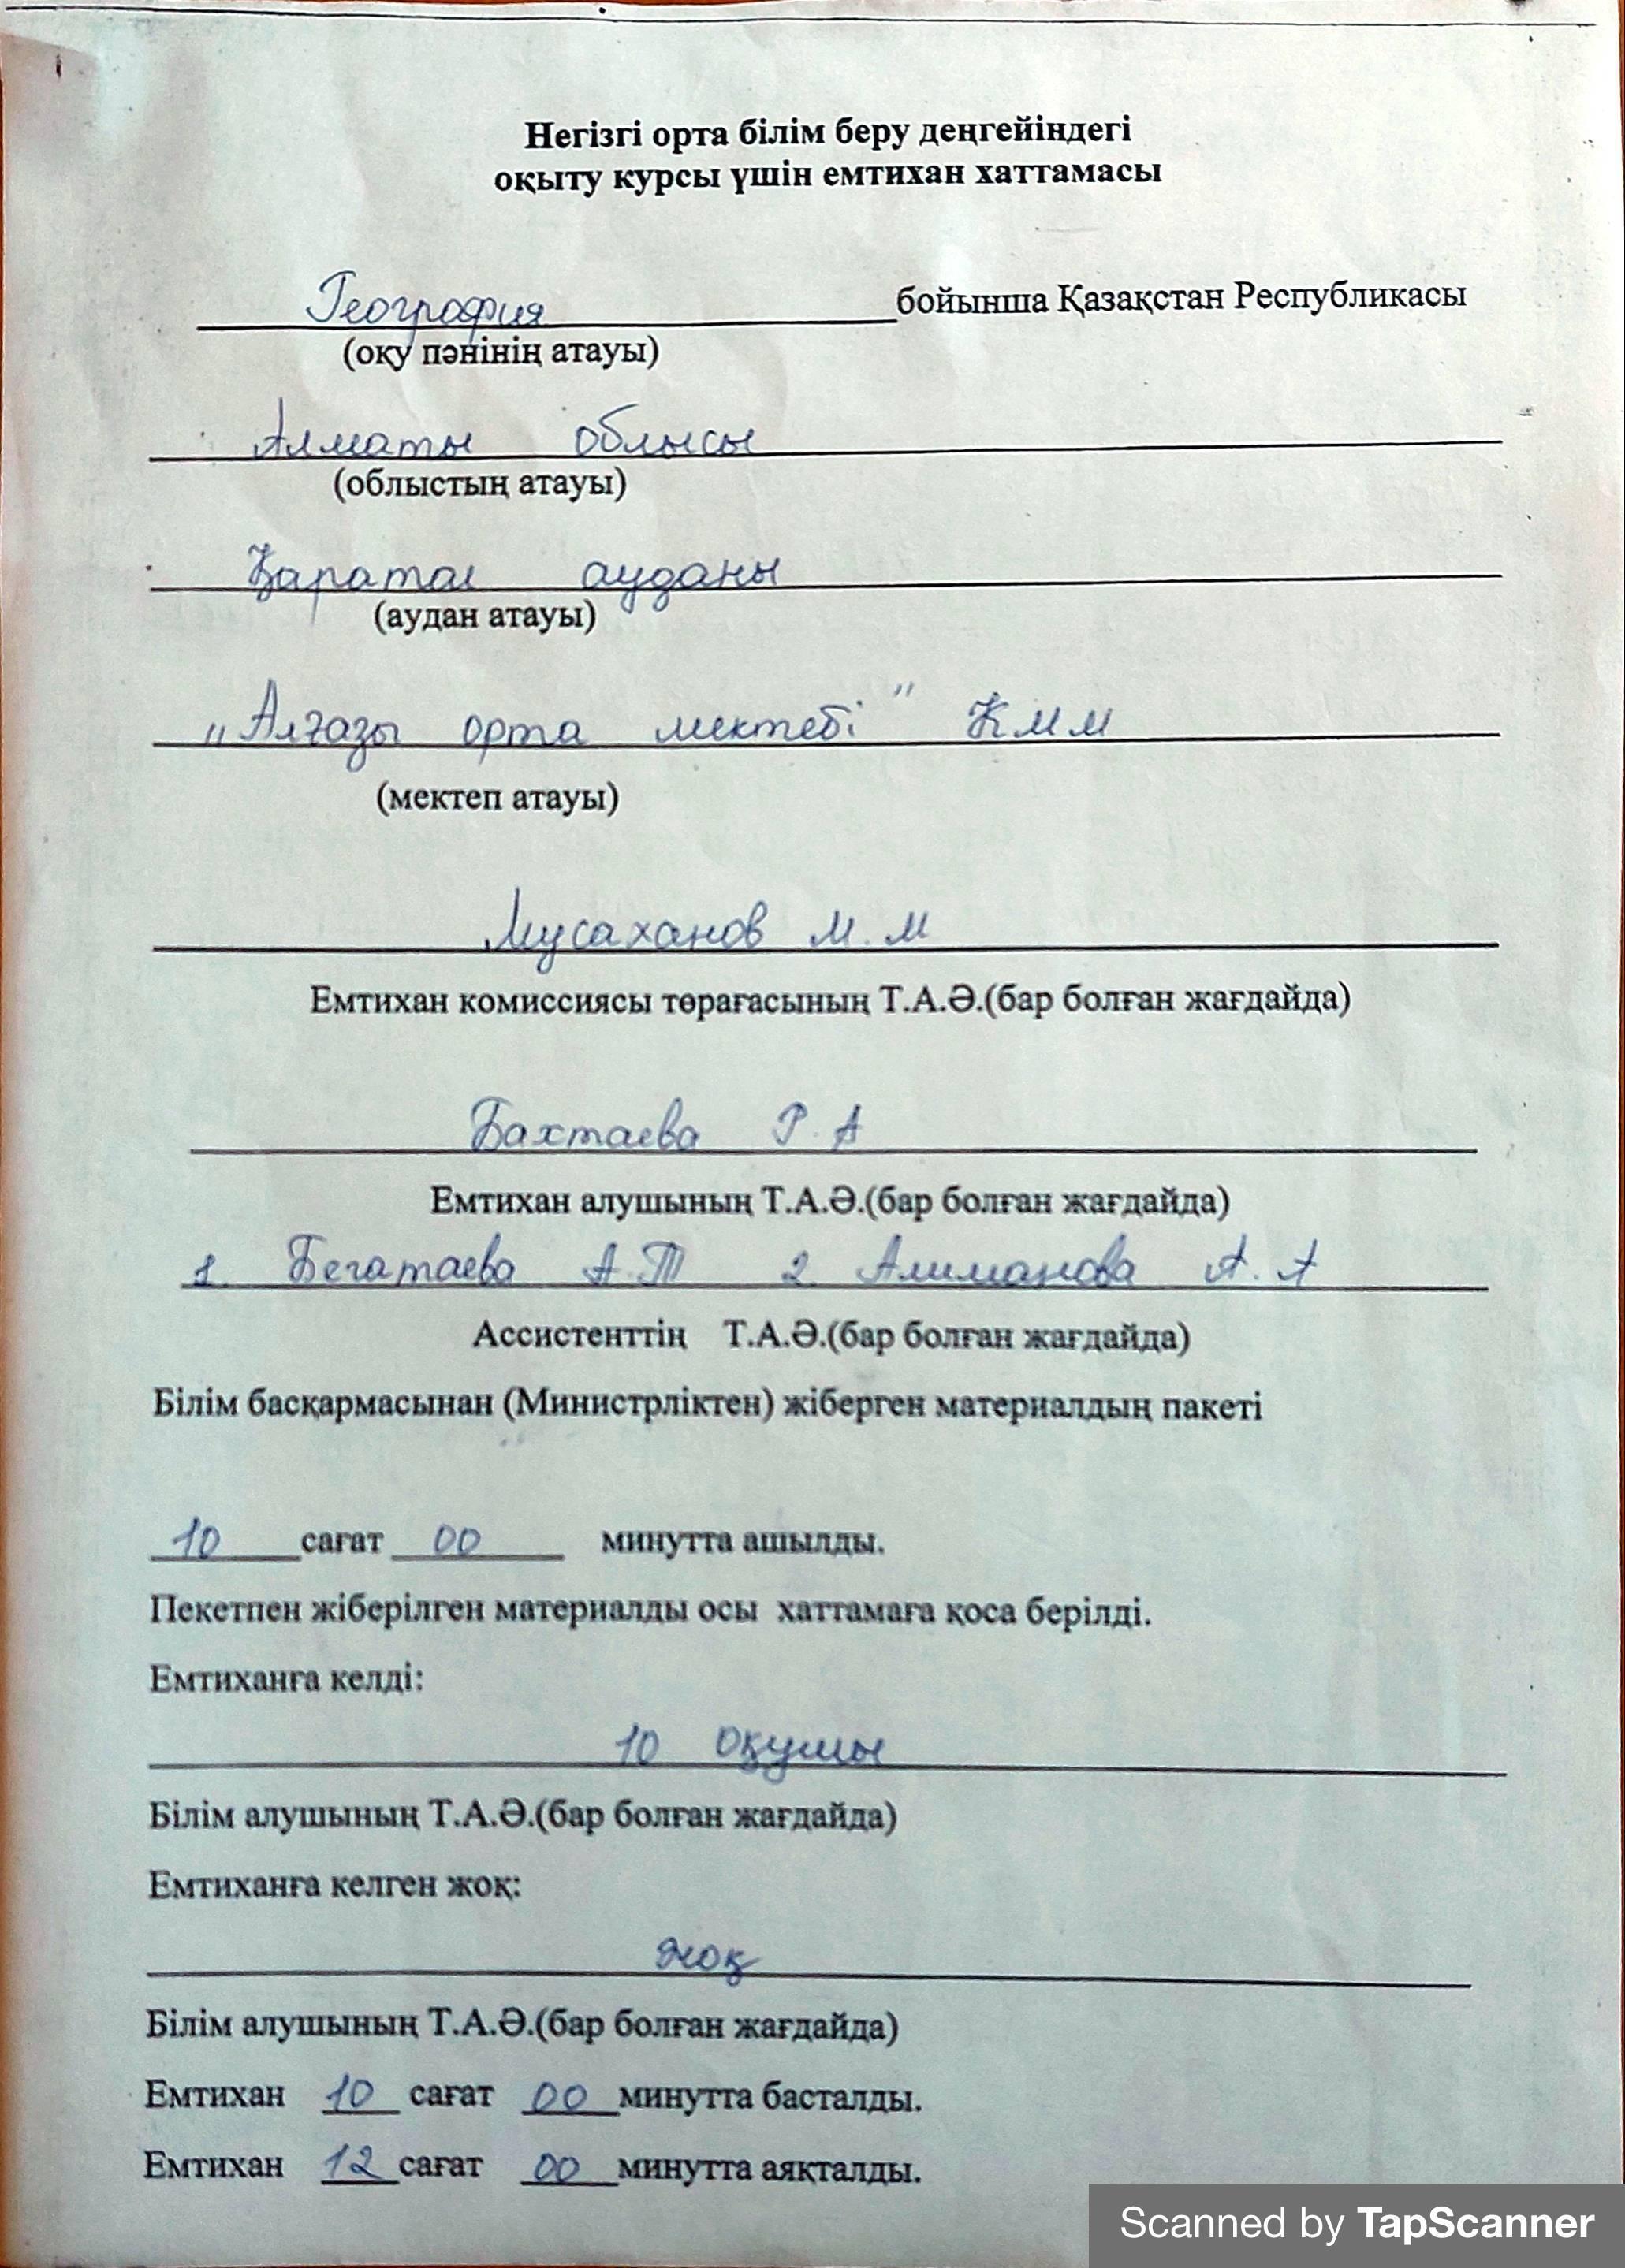 Негізгі орта білім беру деңгейіндегі
оқыту курсы үшін емтихан хаттамасы
География бойынша Қазақстан Республикасы
(оқу пәнінің атауы)
Алматы облысы
(облыстың атауы)
Қаратал ауданы
(аудан атауы)
„Алғазы орта мектебі" КММ
(мектеп атауы)
Мусаханов М.М
Емтихан комиссиясы төрағасының Т.А.Ә.(бар болған жағдайда)
Бахтаева Р.А
Емтихан алушының Т.А.Ә.(бар болған жағдайда)
1. Бегатаева А.Т 2. Алиманова А.А
Ассистенттің Т.А.Ә.(бар болған жағдайда)
Білім басқармасынан (Министрліктен) жіберген материалдың пакеті
10 сағат 00 минутта ашылды.
Пекетпен жіберілген материалды осы хаттамаға қоса берілді.
Емтиханға келді:
10 оқушы
Білім алушының Т.А.Ә.(бар болған жағдайда)
Емтиханға келген жоқ:
жоқ
Білім алушының Т.А.Ә.(бар болған жағдайда)
Емтихан 10 сағат 00 минутта басталды.
Емтихан 12 сағат 00 минутта аяқталды.
Scanned by TapScanner